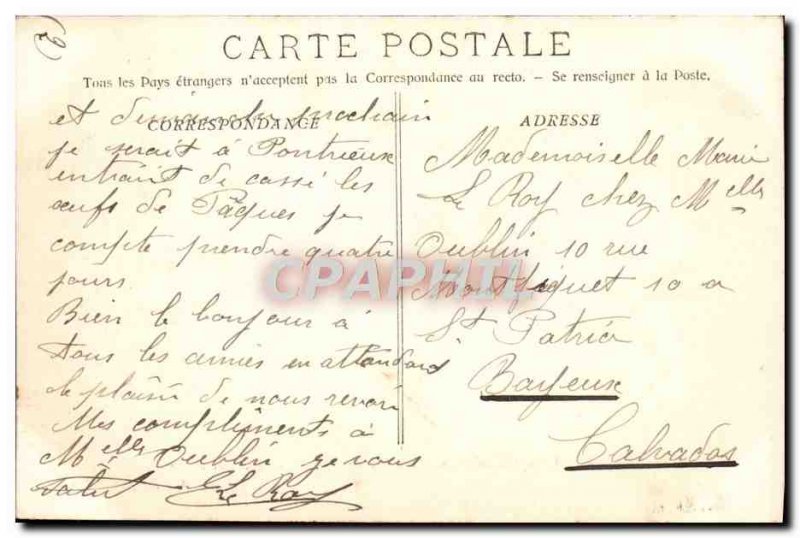 CARTE POSTALE
Tous les Pays étrangers n'acceptent pas la Correspondance au recto. - Se renseigner à la Poste.
CORRESPONDANCE
et dimanche prochain
je serait à Pontrieux
entrain de cassé les
œufs de Pâques je
compte prendre quatre
jours
Bien le bonjour à
tous les amies en attendant
le plaisir de nous revoir
Mes compliments à
Melle Oublin je vous
salut Le Roy
ADRESSE
Mademoiselle Marie
Le Roy chez Melle
Oublin 10 rue
10 a
St Patrice
Bayeux
Calvados
CPAPHIL